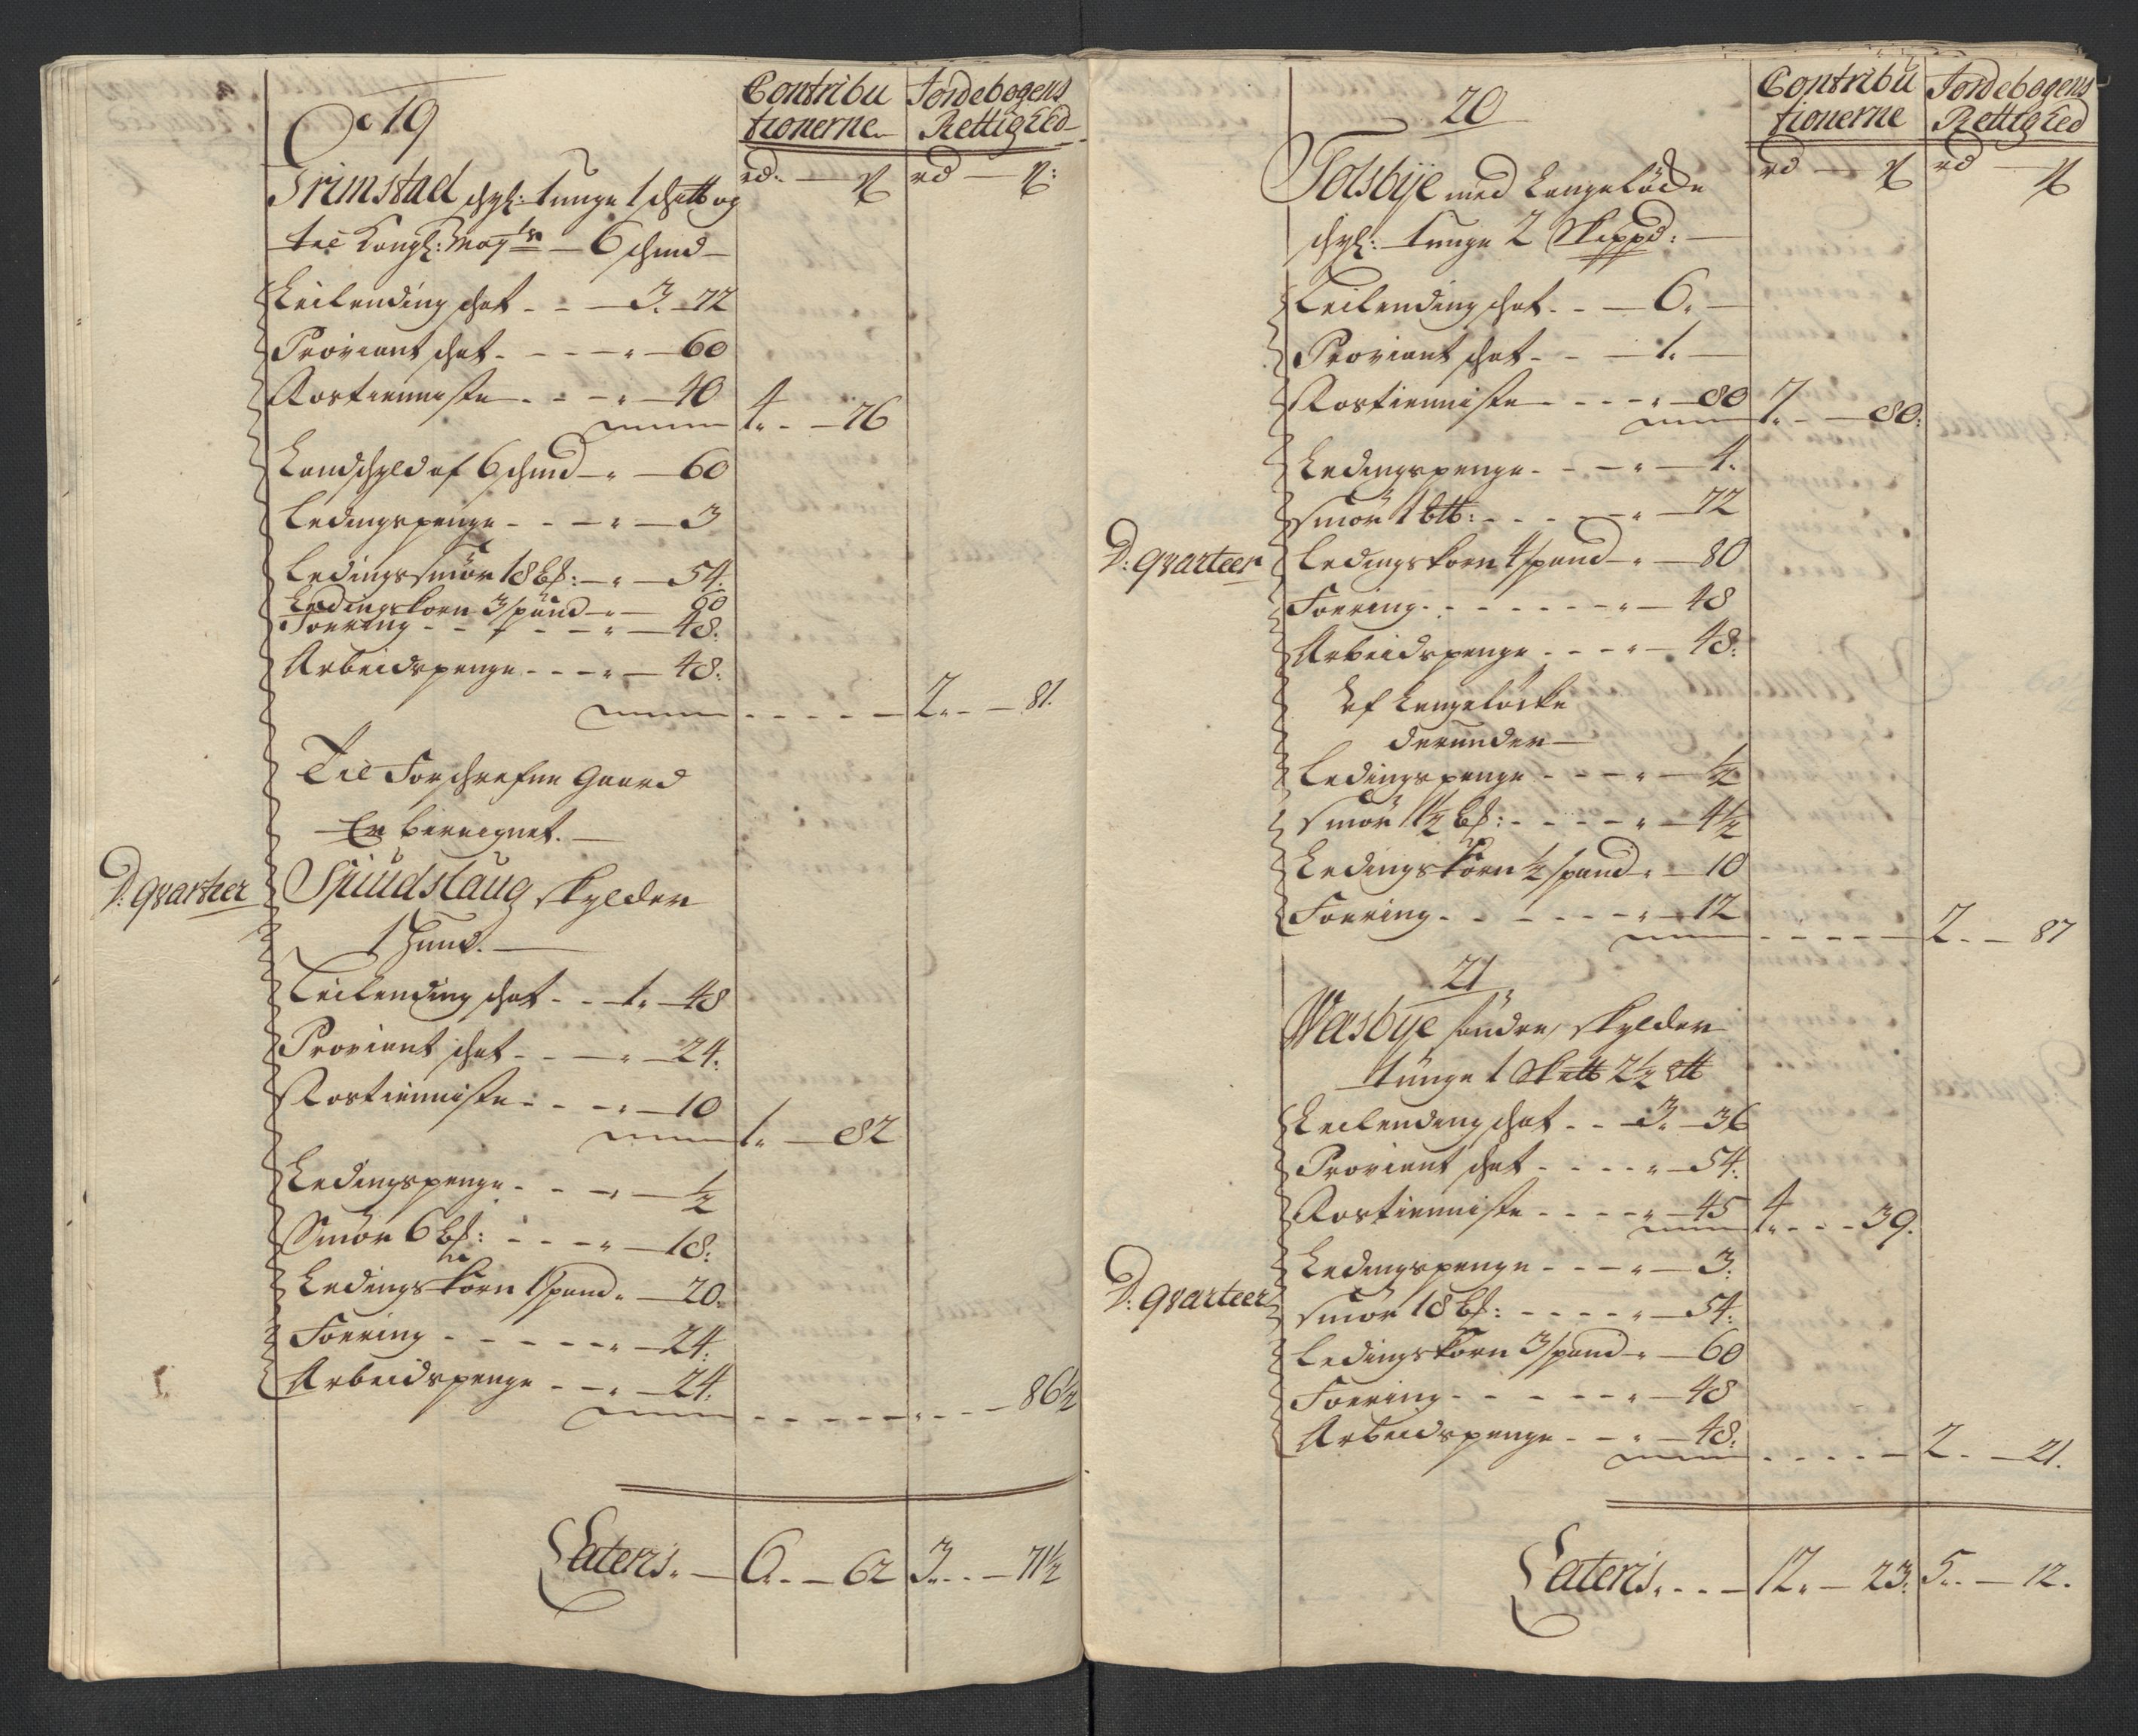 No 19
Contribu
tionerne
Jordebogens
Rettighed
rd ß rd ß
Grimstad schyl: tunge 1 schtt og
til Kongl: Mayts 6 schind
Leilending schat - - 3 - 72
Proviant schat - - - 60
Rostienniste - - - 40
4 - 76
Landschyld af 6 schind - 60
Ledingspenge - - - 3
Ledingssmör 18 bs: - 54
Ledingskorn 3 spand - 60
Foering - - - 48
Arbeidspenge - - - 48
2 - 81
Til Forschrefne Gaard
Er bereignet
D: qvarteer Spiudslaug skylder
1 Hund
Leilending schat - - 1 - 48
Proviant schat - - - 24
Rostienniste - - - 10
1 - 82
Ledingspenge - - - ½
Smör 6 bs: - - - 18
Ledingskorn 1 spand - 20
Foering - - - 24
Arbeidspenge - - - 24
86½
Lateris - 6 - 62 3 - 71½
20
Contribu
tionerne
Jordebogens
Rettighed
rd ß rd ß
Tolsbye med Lengeløcke
schyl: tunge 2 Skippd:
Leilending schat - - 6
Proviant schat - - 1
Rostienniste - - - 80
7 - 80
Ledingspenge - - - 4
smör 1 btt: - - - 72
D: qvarteer Ledingskorn 4 spand - 80
Foering - - - 48
Arbeidspenge - - - 48
Af Lengeløcke
derunder
Ledingspenge - - - ½
smör 1½ bs: - - - 4½
Ledingskorn ½ spand - 10
Foering - - - 12
2 - 87
21
Wesbye söndre, skylder
tunge 1 Sktt 2½ Ltt
Leilending schat - - 3 - 36
Proviant schat - - - 54
Rostienniste - - - 45
4 - 39
Ledingspenge - - - 3
D: qvarteer smör 18 bs: - - - 54
Ledingskorn 3 spand - 60
Foering - - - 48
Arbeidspenge - - - 48
2 - 21
Lateris - 12 - 23 5 - 12